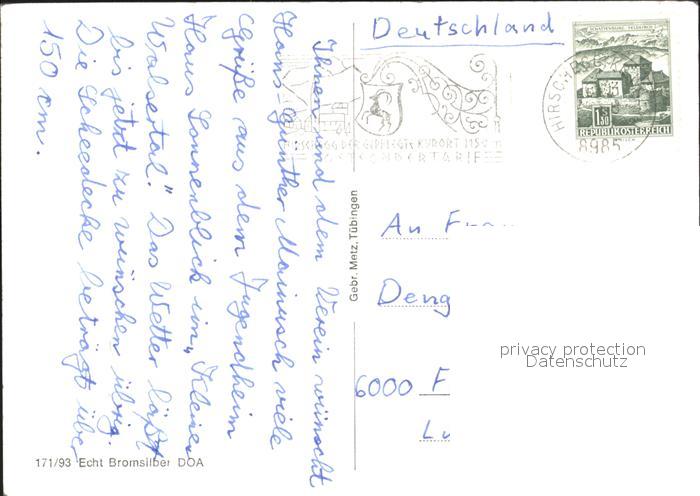 Deutschland
SCHATTENBURG FELDKIRCH
1.50
REPUBLIK ÖSTERREICH
HIRSCHEGG
8985
HIRSCHEGG DER GEPFLEGTE KURORT 1124 m
POSTSONDERTARIF
Ihnen und dem Verein wünscht
Hans-Günther Mainusch viele
Grüße aus dem Jugendheim
Haus Sonnenblick im „Kleinen
Walsertal." Das Wetter läßt
bis jetzt zu wünschen übrig.
Die Scheedecke beträgt über
150 cm.
Gebr. Metz, Tübingen
An F
Deng
6000 F
Lu
privacy protection
Datenschutz
171/93 Echt Bromsilber DOA